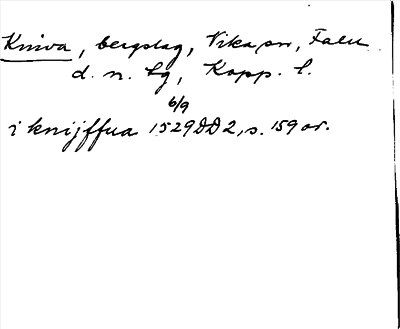 Kniva, bergslag, Vika sn, Falu
d. n. lg, Kopp. l.
6/9
i knijffua 1529 DD 2, s. 159 or.